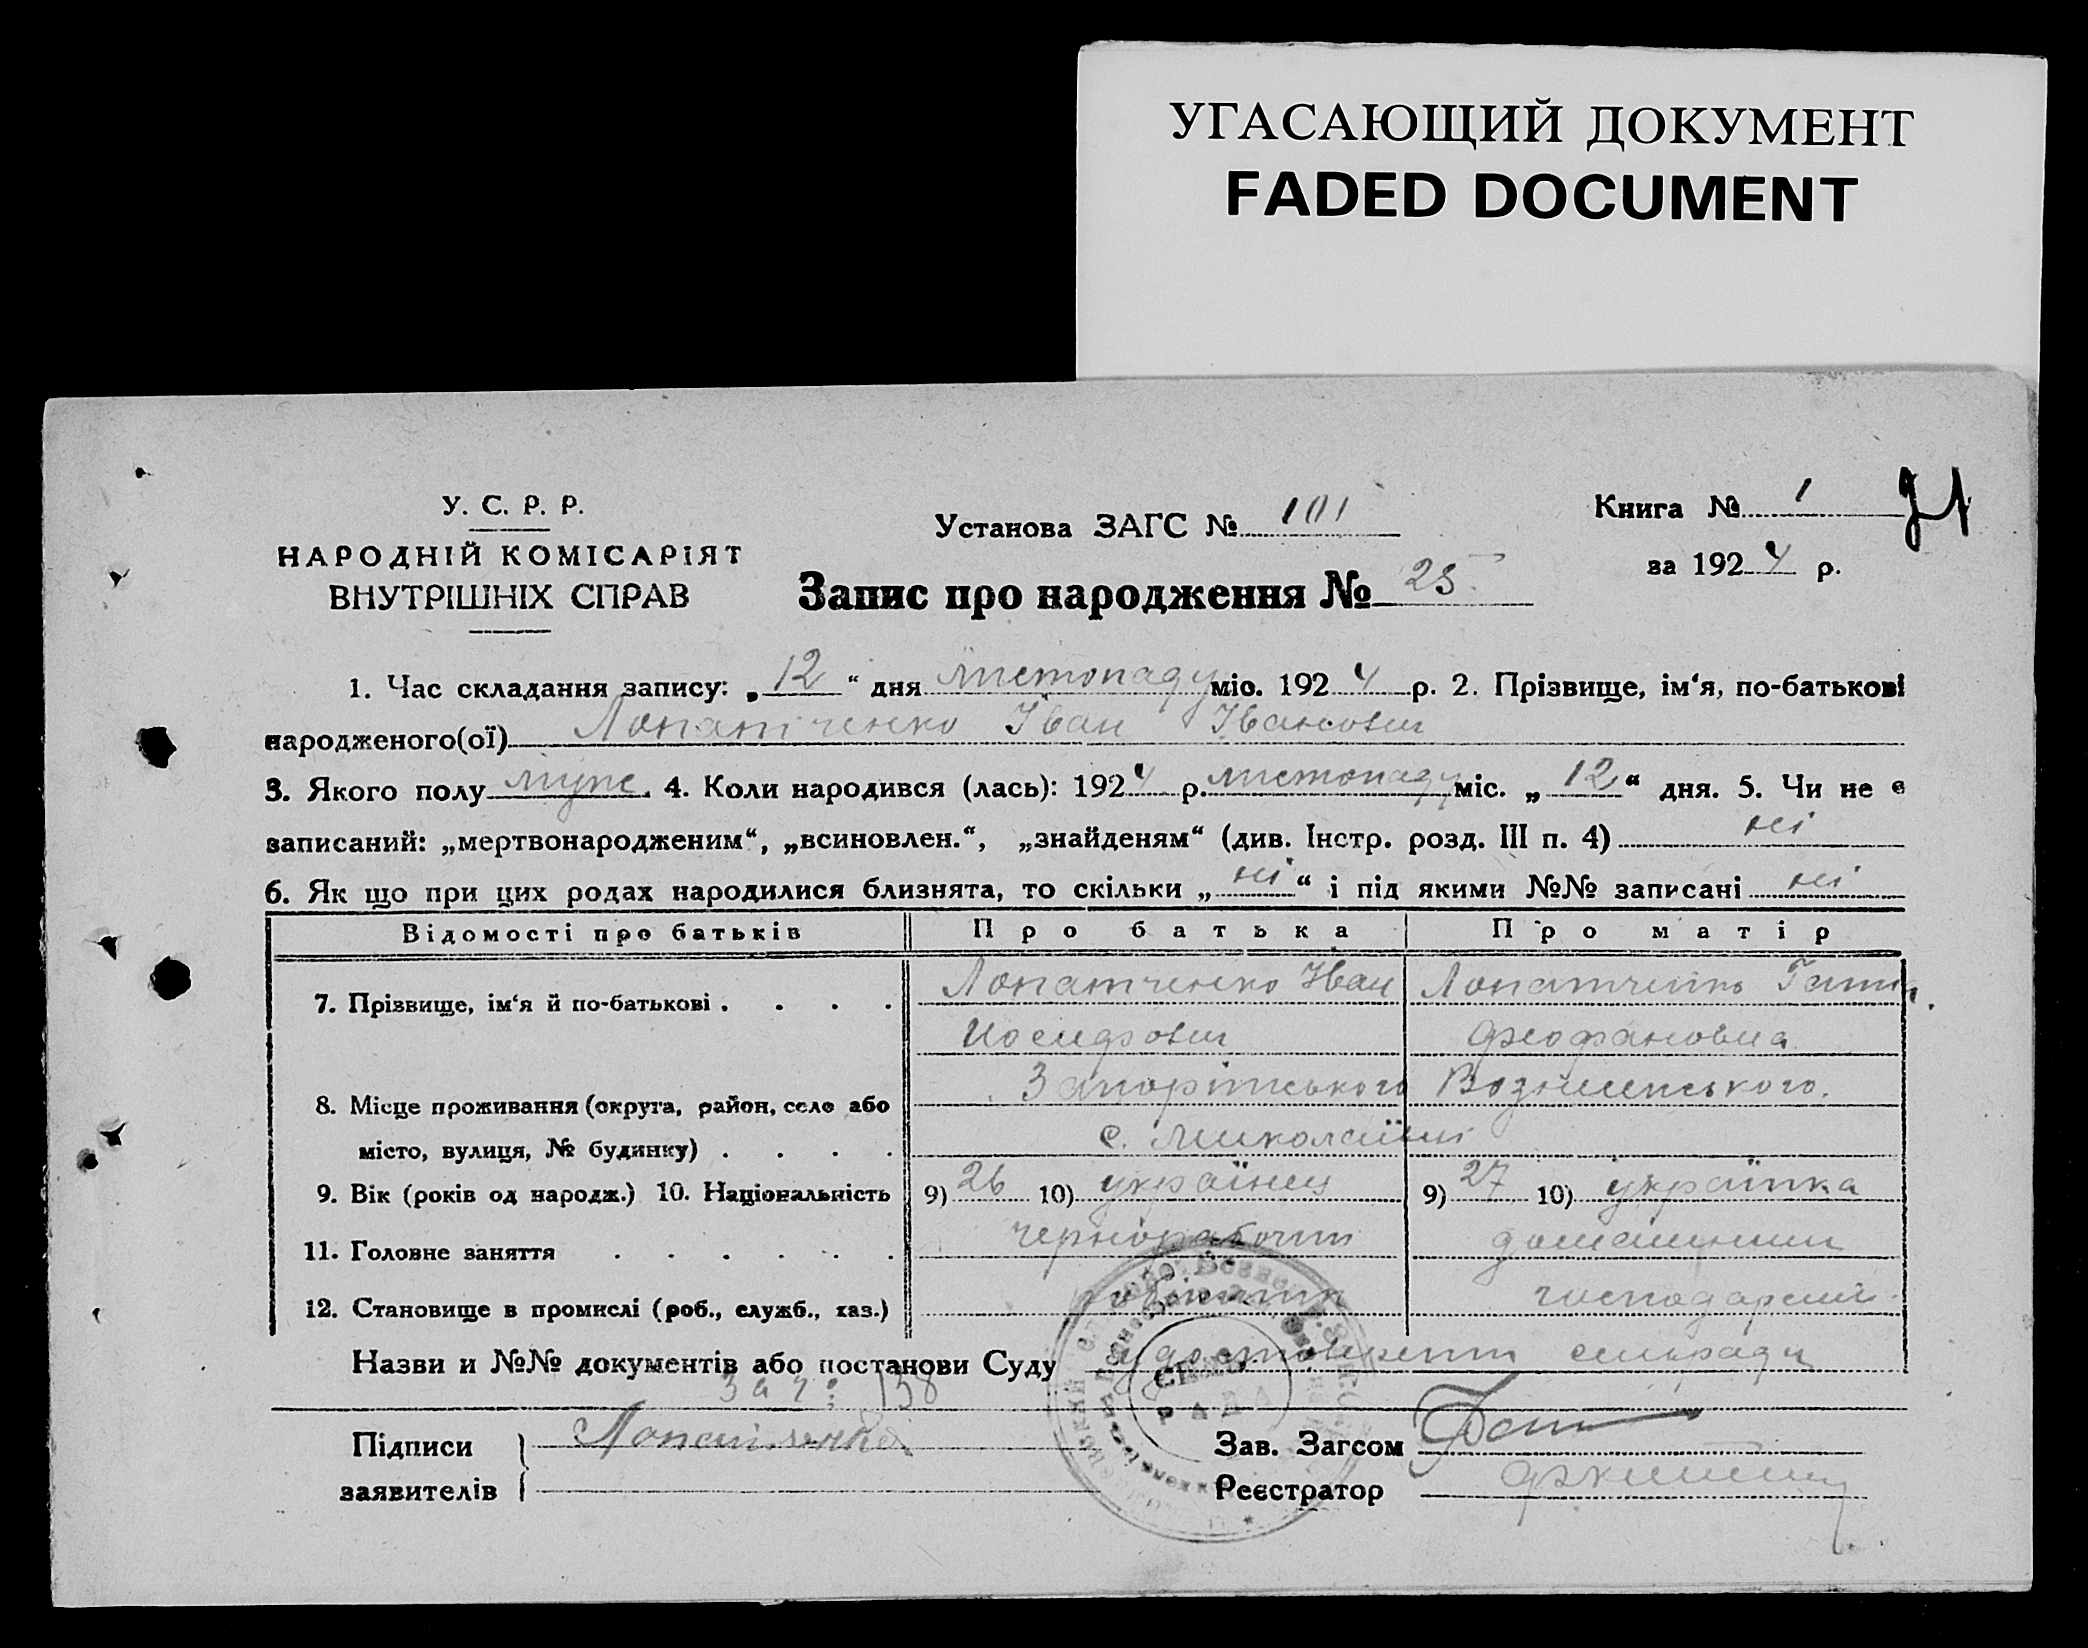 УГАСАЮЩИЙ ДОКУМЕНТ
FADED DOCUMENT
У. С. Р. Р.
НАРОДНІЙ КОМІСАРІЯТ
ВНУТРІШНІХ СПРАВ
Установа ЗАГС № 101
Книга № 1
за 1924 р.
Запис про народження № 25
1. Час складання запису: „12“ дня листопаду міс. 1924 р. 2. Прізвище, ім‘я, по-батькові
народженого(ої) Лопатченко Іван Іванович
3. Якого полу муж. 4. Коли народився (лась): 1924 р. листопаду міс. „12“ дня. 5. Чи не є
записаний: „мертвонародженим“, „всиновлен.“, „знайденям“ (див. Інстр. розд. III п. 4) ні
6. Як що при цих родах народилися близнята, то скільки „ні“ і під якими №№ записані ні
Відомості про батьків Про батька Про матір
7. Прізвище, ім‘я й по-батькові . . . . Лопатченко Іван Лопатченко Ганна
Иосифович Феофановна
Запоріжського Вознесенського.
8. Місце проживання (округа, район, село або
місто, вулиця, № будинку) . . . . с. Миколаївка
9. Вік (років од народж.) 10. Національність 9) 26 10) українец 9) 27 10) українка
11. Головне заняття . . . . . . чернорабочий домашньим
12. Становище в промислі (роб., служб., хаз.) робітник господарем
Назви и №№ документів або постанови Суду удостоверения сильради
за ч: 138
Підписи Лопатченко Зав. Загсом
заявителів Реєстратор
СІЛЬР.
РАДА